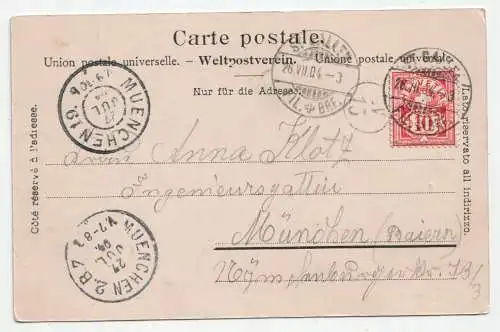 Carte postale.
Union postale universelle. – Weltpostverein. – Unione postale universale.
Nur für die Adresse.
Côté réservé à l'adresse.
Lato riservato all indirizzo.
ST. GALLEN
26.VII.04.–3
BRF.
10
15
MUENCHEN 19.
JUL
MUENCHEN 2.B.7
V.7-8
27
JUL
04
Frau Anna Klotz
Ingenieursgattin
München (Baiern)